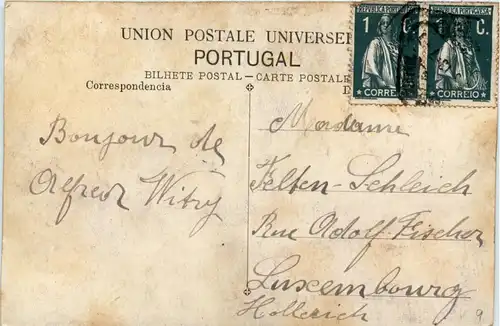 UNION POSTALE UNIVERSE
PORTUGAL
BILHETE POSTAL - CARTE POSTALE
Correspondencia
REPUBLICA PORTUGUESA
1 C.
CORREIO
REPUBLICA PORTUGUESA
C.
CORREIO
Bonjour de
Alfred Witry
Madame
Felten-Schleich
Rue Adolf Fischer
Luxembourg
Hollerich
9